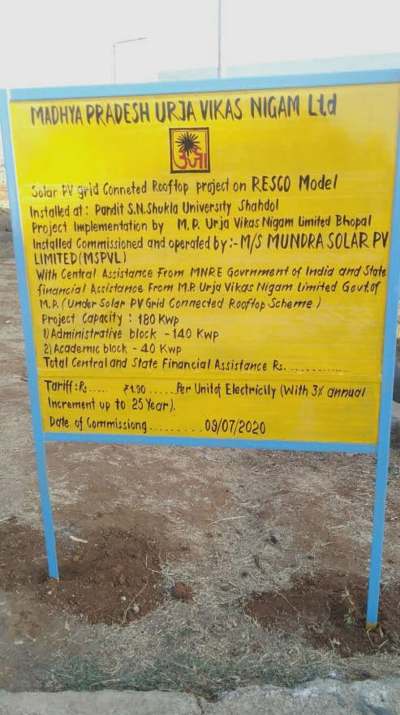 MADHYA PRADESH URJA VIKAS NIGAM Ltd
ऊर्जा
Solar PV grid Conneted Rooftop project on RESCO Model
Installed at: Pandit S.N.Shukla University Shahdol
Project Implementation by M.P. Urja Vikas Nigam Limited Bhopal
Installed Commissioned and operated by:- M/S MUNDRA SOLAR PV
LIMITED(MSPVL)
With Central Assistance From MNRE Government of India and State
financial Assistance From M.P. Urja Vikas Nigam Limited Govt.of
M.P. (Under Solar PV Grid Connected Rooftop Scheme)
Project Capacity : 180 Kwp
1) Administrative block - 140 Kwp
2) Academic block - 40 Kwp
Total Central and State Financial Assistance Rs.............
Tariff : Rs..... ₹1.90 ......Per Unit of Electricity (With 3% annual
Increment up to 25 Year).
Date of Commissiong .......... 09/07/2020